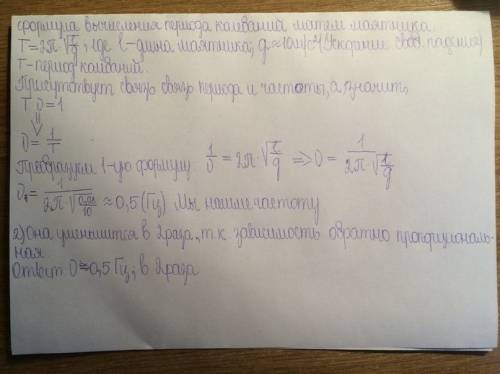 формула вычисления периода колебаний матем маятника.
T=2π√l/g, где l-длина маятника, g≈10м/с²(Ускорение своб. падения)
T-период колебаний.
Присутствует связь связь периода и частоты, а значит,
T υ=1
⇓
υ=1/T
Преобразуем 1-ую формулу 1/υ = 2π·√l/g ⇒ υ = 1/2π·√l/g
= 1/2π·√ /10 ≈ 0,5 (Гц). Мы нашли частоту
2) Она уменьшится в 2 раза, т.к зависимость обратно пропорциональ-
ная.
Ответ: υ≈0,5 Гц; в 2 раза